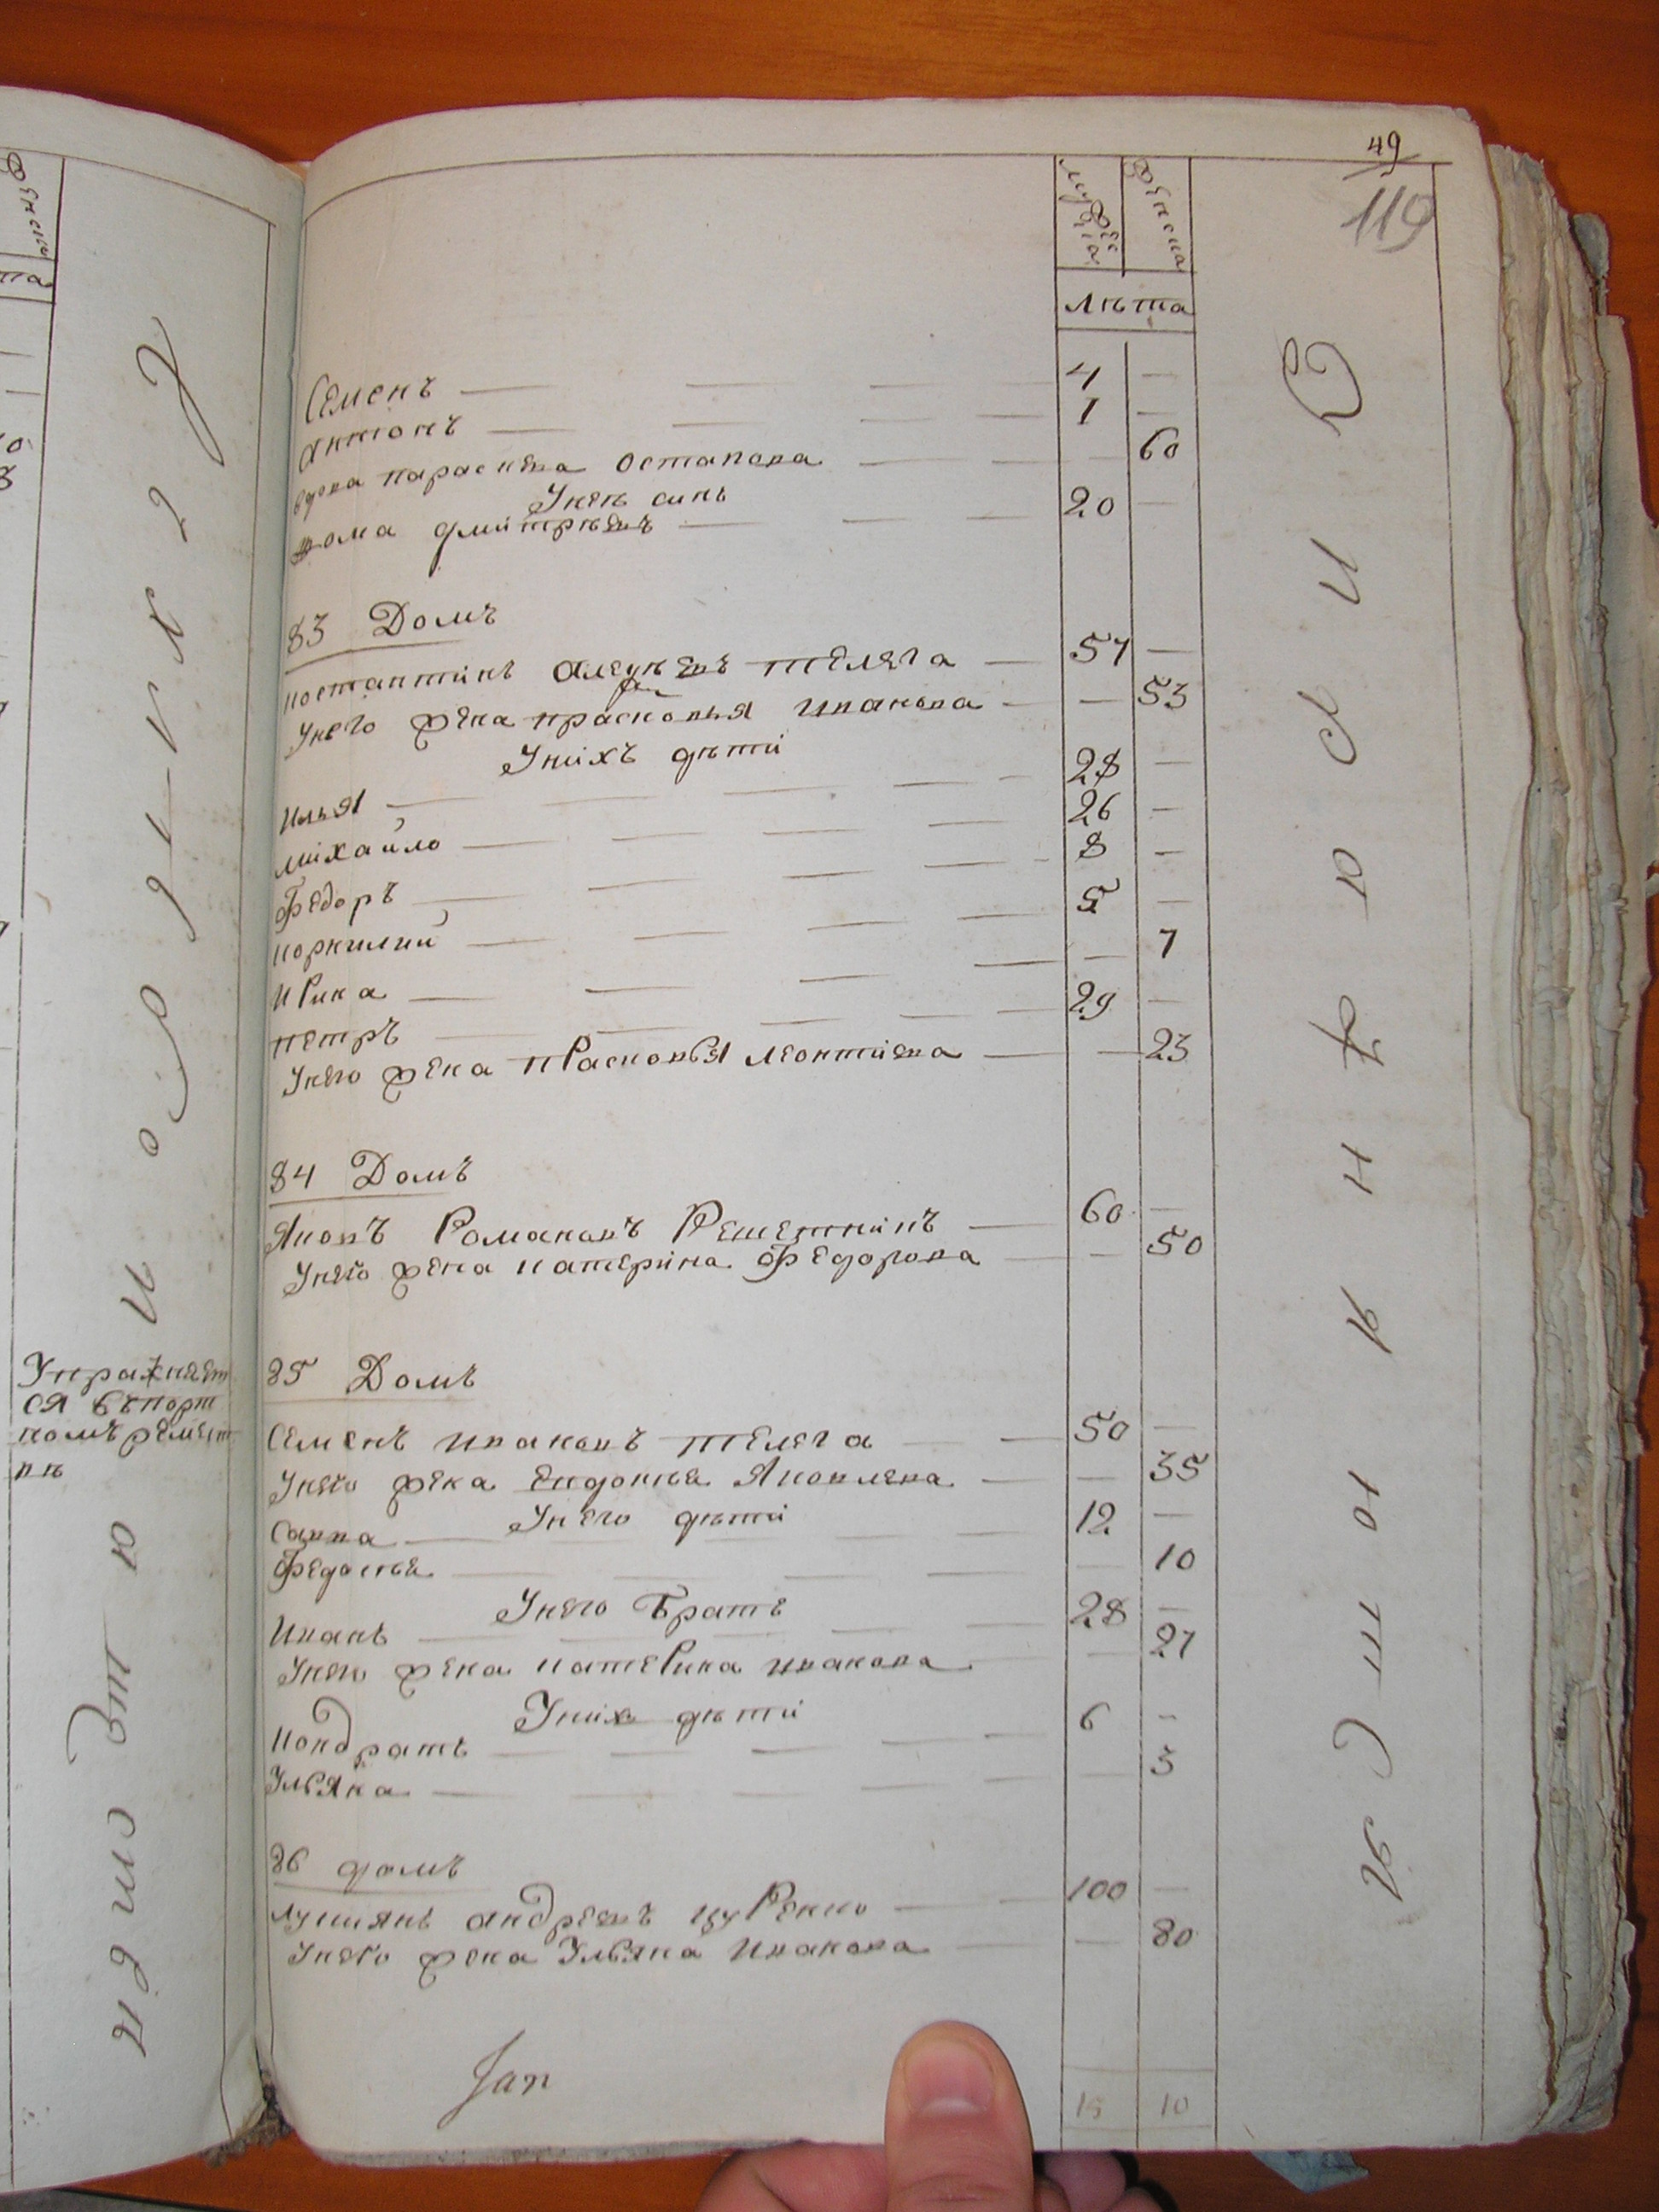 49
119
мужеска
женска
лѣта
Семенъ — — — 4 —
Антонъ — — — 1 —
вдова параскева Остапова — — — 60
Унеѣ синъ
Фома дмитріевъ — — — 20 —
83 Домъ
костантинъ Алеѯѣевъ телега — 57 —
Унего жена прасковья иванова — — 53
Унихъ дѣти
илья — — — — 28 —
михайло — — — — 26 —
Федоръ — — — — 8 —
корнилий — — — 5 —
ирина — — — — 7
петръ — — — — 29 —
Унего жена прасковья леонтиева — — 23
84 Домъ
Яковъ Романовъ Решетникъ — 60 —
Унего жена катерина Федорова — — 50
85 Домъ
Семенъ ивановъ телега — — 50 —
Унего жена Евдокия Яковлева — — 35
Унего дѣти
Савва — — — — 12 —
Федосья — — — — 10
Унего Братъ
Иванъ — — — — 28 —
Унего жена катерина иванова — 27
Уних дѣти
кондратъ — — — — 6 —
Ульяна — — — — 3
86 домъ
лукиянъ андреевъ цуренко — — 100 —
Унего жена Ульяна иванова — — 80
15 10
Упражняет
ся въ порт
номъ ремест
вѣ